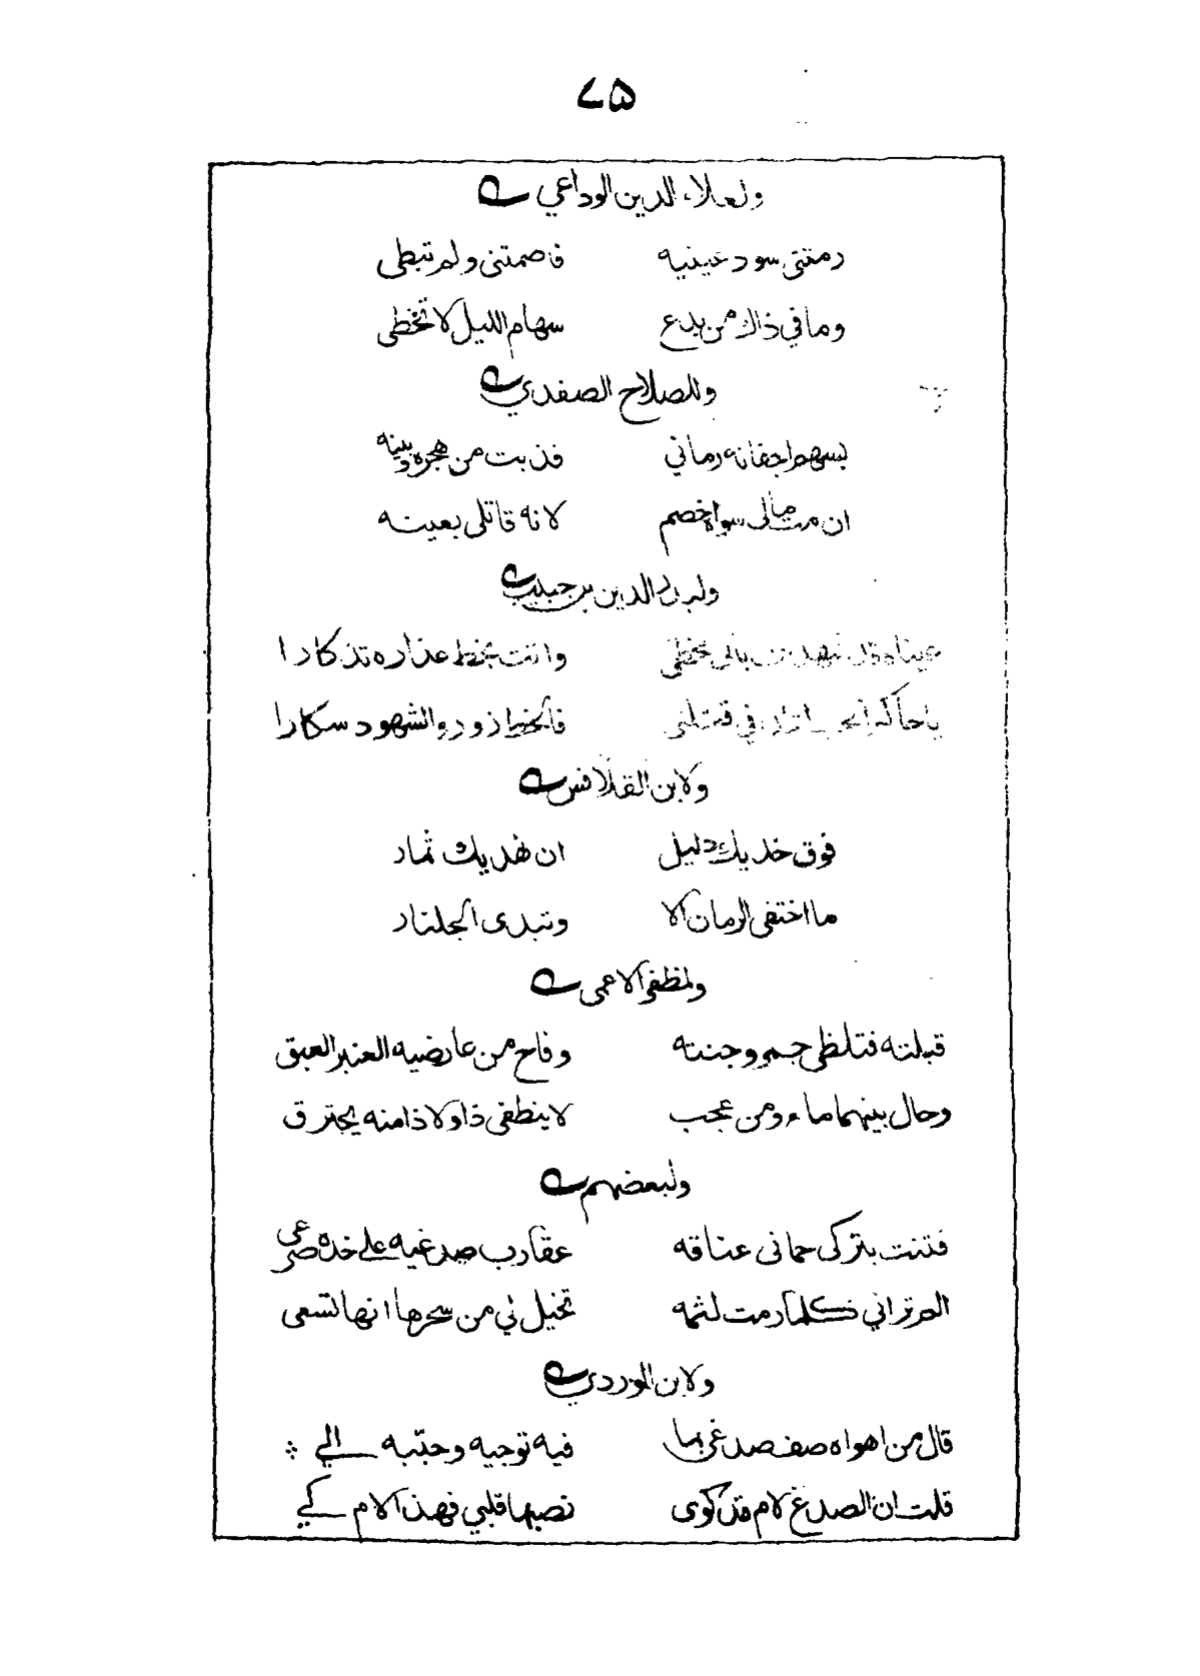 ٧٥
ولعلاء الدين الوداعي
رمتني سود عينيه فاصمتني ولم تبطى
وما في ذاك من بدع سهام الليل لا تخطى
وللصلاح الصفدي
بسهم اجفانه رماني فذبت من هجره وبينه
ان مت مالى سواه خصم لانه قاتلى بعينه
ولبدر الدين بن حبيب
عيناه قد شهدت بانى مخطى واتت بخط عذاره تذكارا
يا حاكم الحب اتئد في قتلتى فالخط زور والشهود سكارا
ولابن القلاقس
فوق خديك دليل ان نهديك ثمار
ما اختفى الرمان الا وتبدى الجلنار
ولمظفر الاعمى
قبلته فتلظى جمر وجنته وفاح من عارضيه العنبر العبق
وحال بينهما ماء ومن عجب لا ينطفى ذا ولا ذا منه يحترق
ولبعضهم
فتنت بتركى حمانى عناقه عقارب صدغيه على خده صرعى
الم ترانى كلما رمت لثمه تخيل لي من سحرها انها تسعى
ولابن الوردي
قال من اهواه صف صدغى بما فيه توجيه وحببه الي
قلت ان الصدغ لام قد كوى نصبها قلبي فهذا لام كي